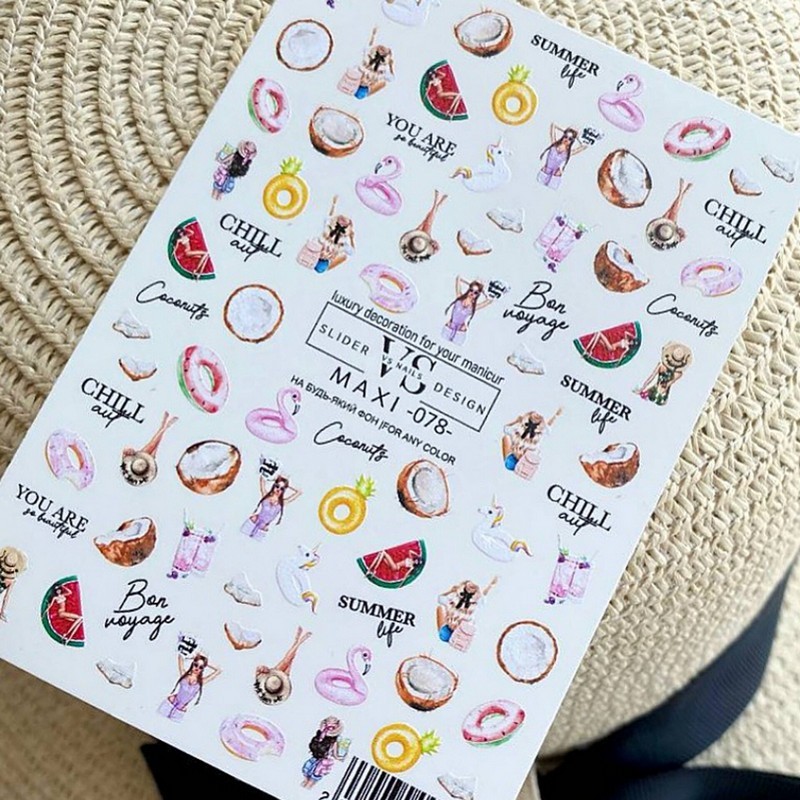 SUMMER
life
YOU ARE
so beautiful
CHILL
aut
CHILL
aut
Coconuts
Bon
voyage
Coconuts
luxury decoration for your manicur
SLIDER VS DESIGN
VS NAILS
MAXI -078-
НА БУДЬ-ЯКИЙ ФОН |FOR ANY COLOR
Coconuts
SUMMER
life
CHILL
aut
CHILL
aut
YOU ARE
so beautiful
Bon
voyage
SUMMER
life
2